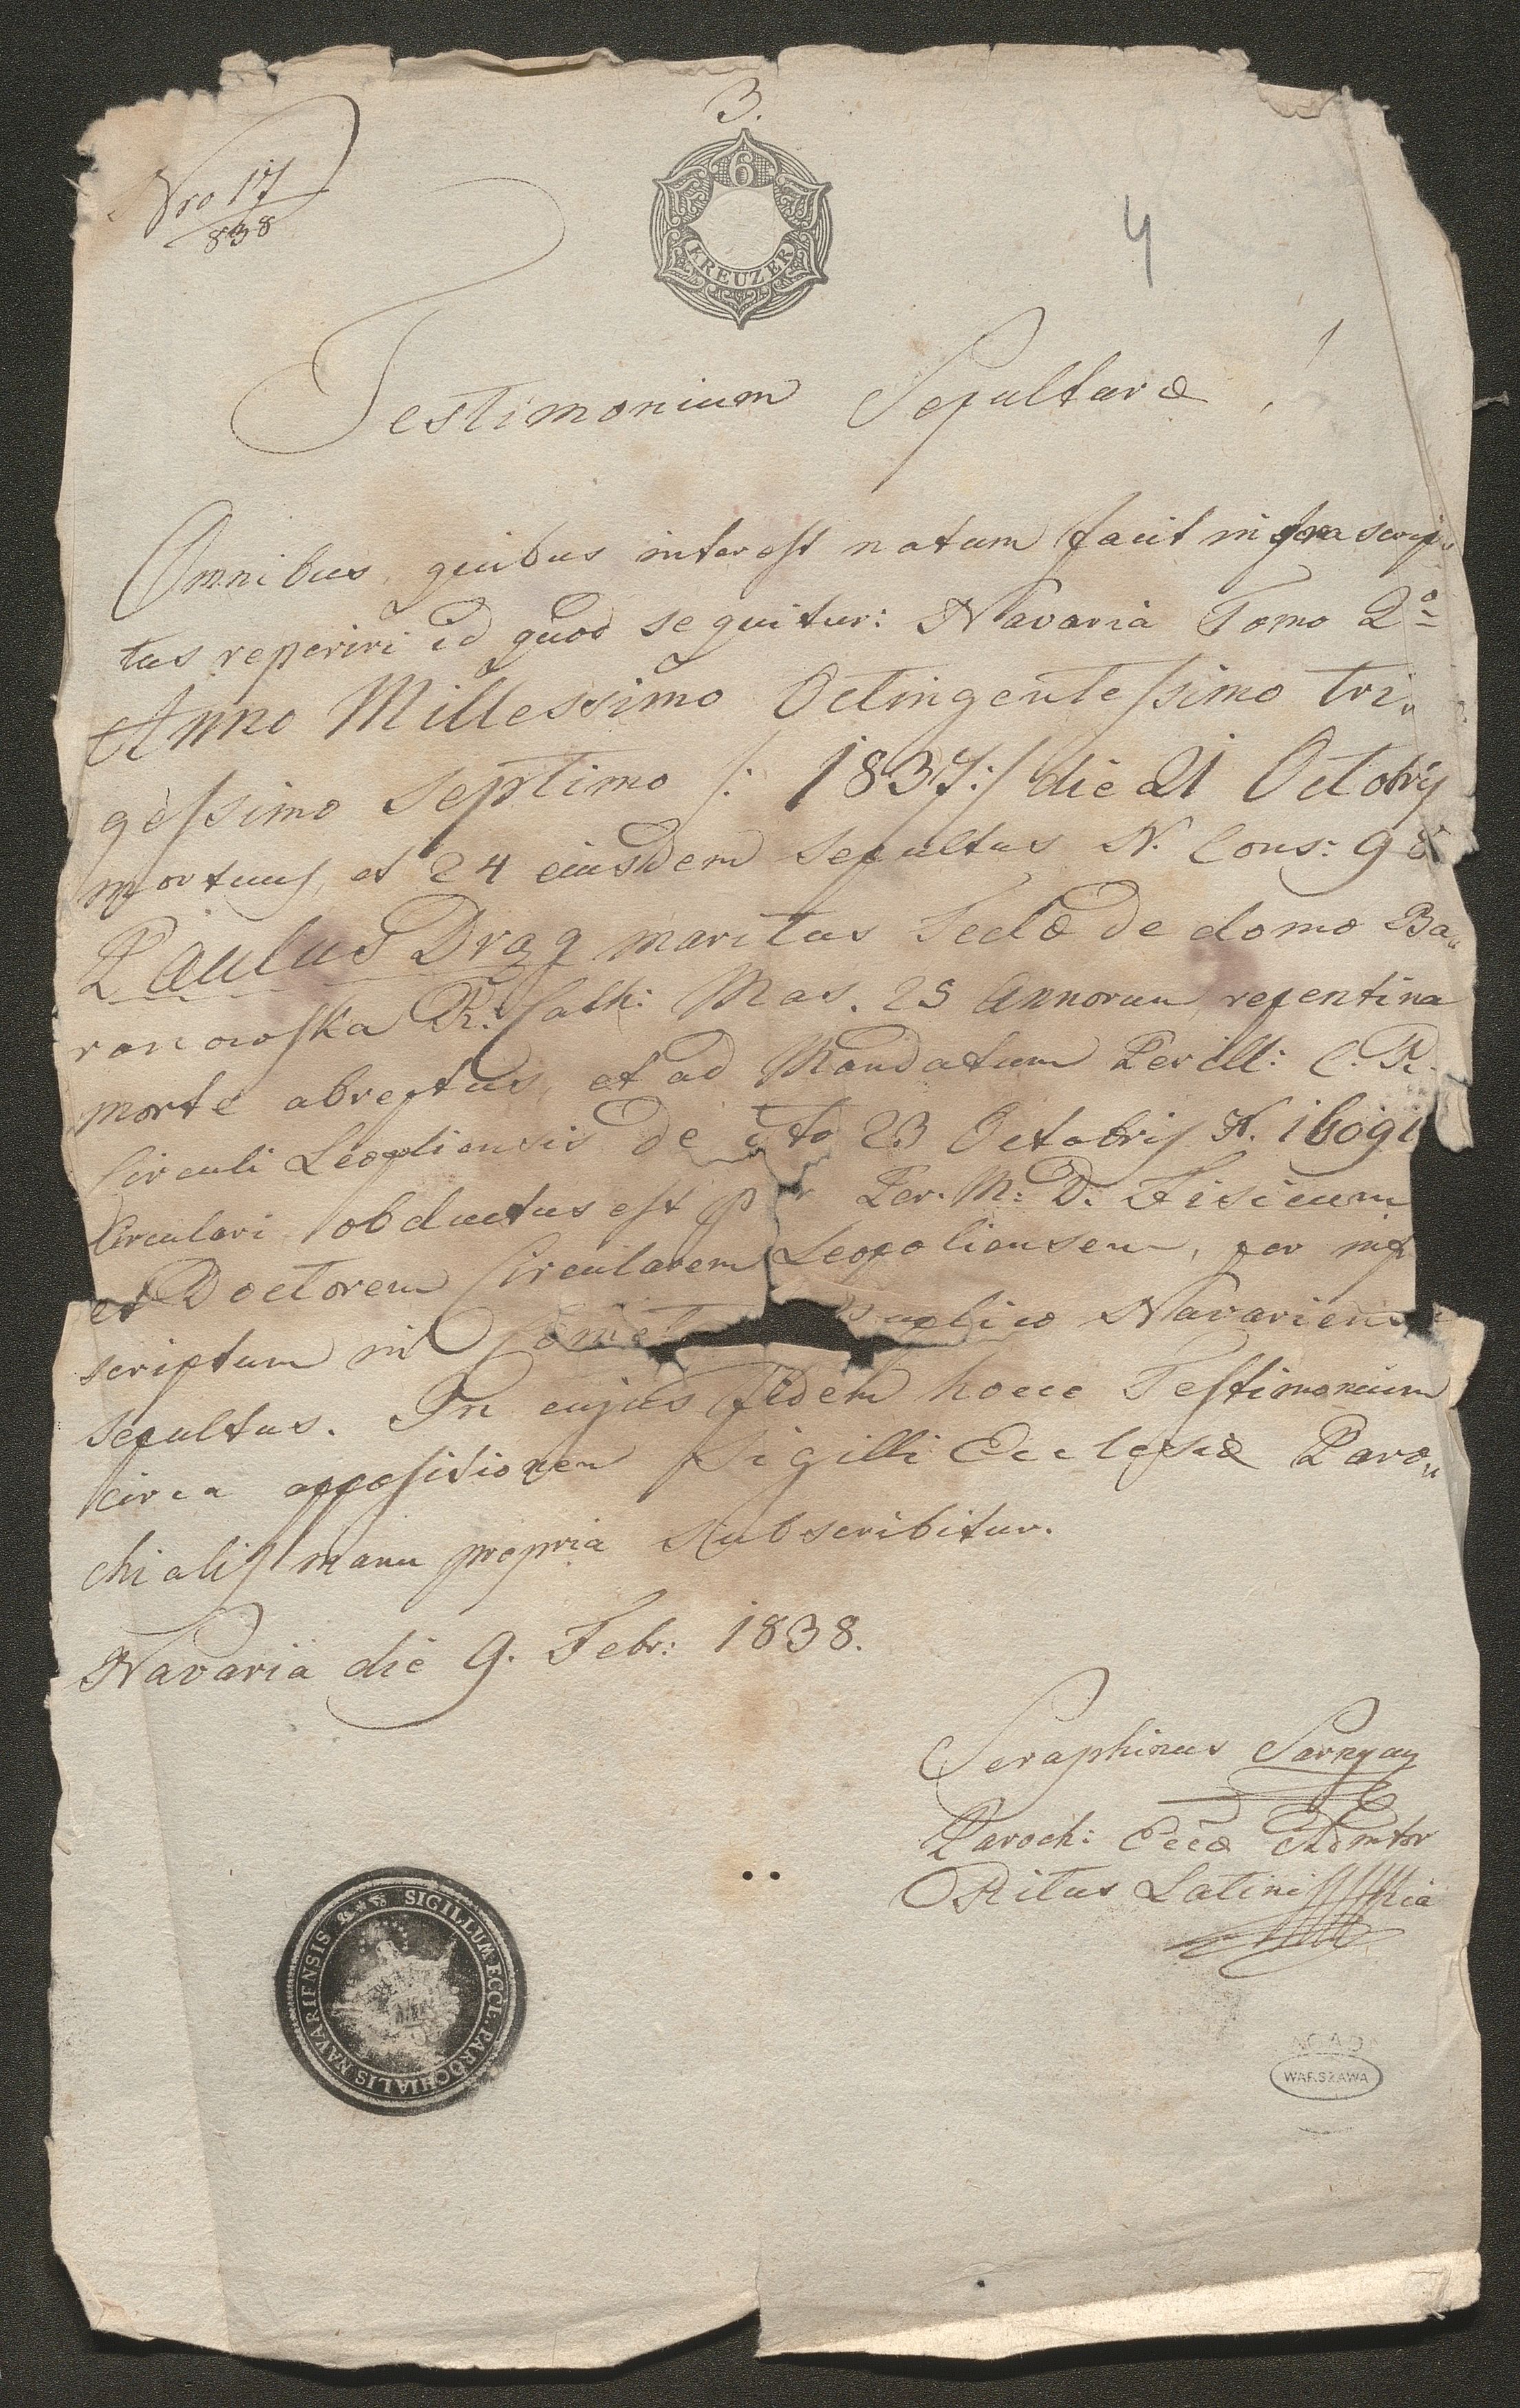 3.
Nro 17/838
6
KREUZER
4
Testimonium Sepulturæ
Omnibus quibus interest notum facit infra scrip
tus reperiri id quod sequitur: Navaria Tomo 2o
Anno Millessimo Octingentessimo tri„
gessimo septimo /: 1837 :/ die 21 Octobris
mortuus, et 24 eiusdem sepultus N. Cons: 98
Paulus Drąg maritus Teclæ de domo Ba„
ranowska R. Cath: Mas. 25 Annorum repentina
morte abreptus, et ad Mandatum Perill: C. R.
Circuli Leopoliensis de dto 23 Octobris N. 16091
Circulari obductus est per Per. M: D. Fisicum
et Doctorem Circularem Leopoliensem, per inf
scriptum in Publico Navariensi
sepultus. In cujus fidem hocce Testimonium
circa appositionem Sigilli Ecclesiæ Paro„
chialis manu propria subscribitur.
Navaria die 9. Febr: 1838.
Seraphinus
Paroch: Eccæ Admtor
Ritus Latini
SIGILLUM ECCL. PAROCHIALIS NAVARIENSIS
AGAD
WARSZAWA